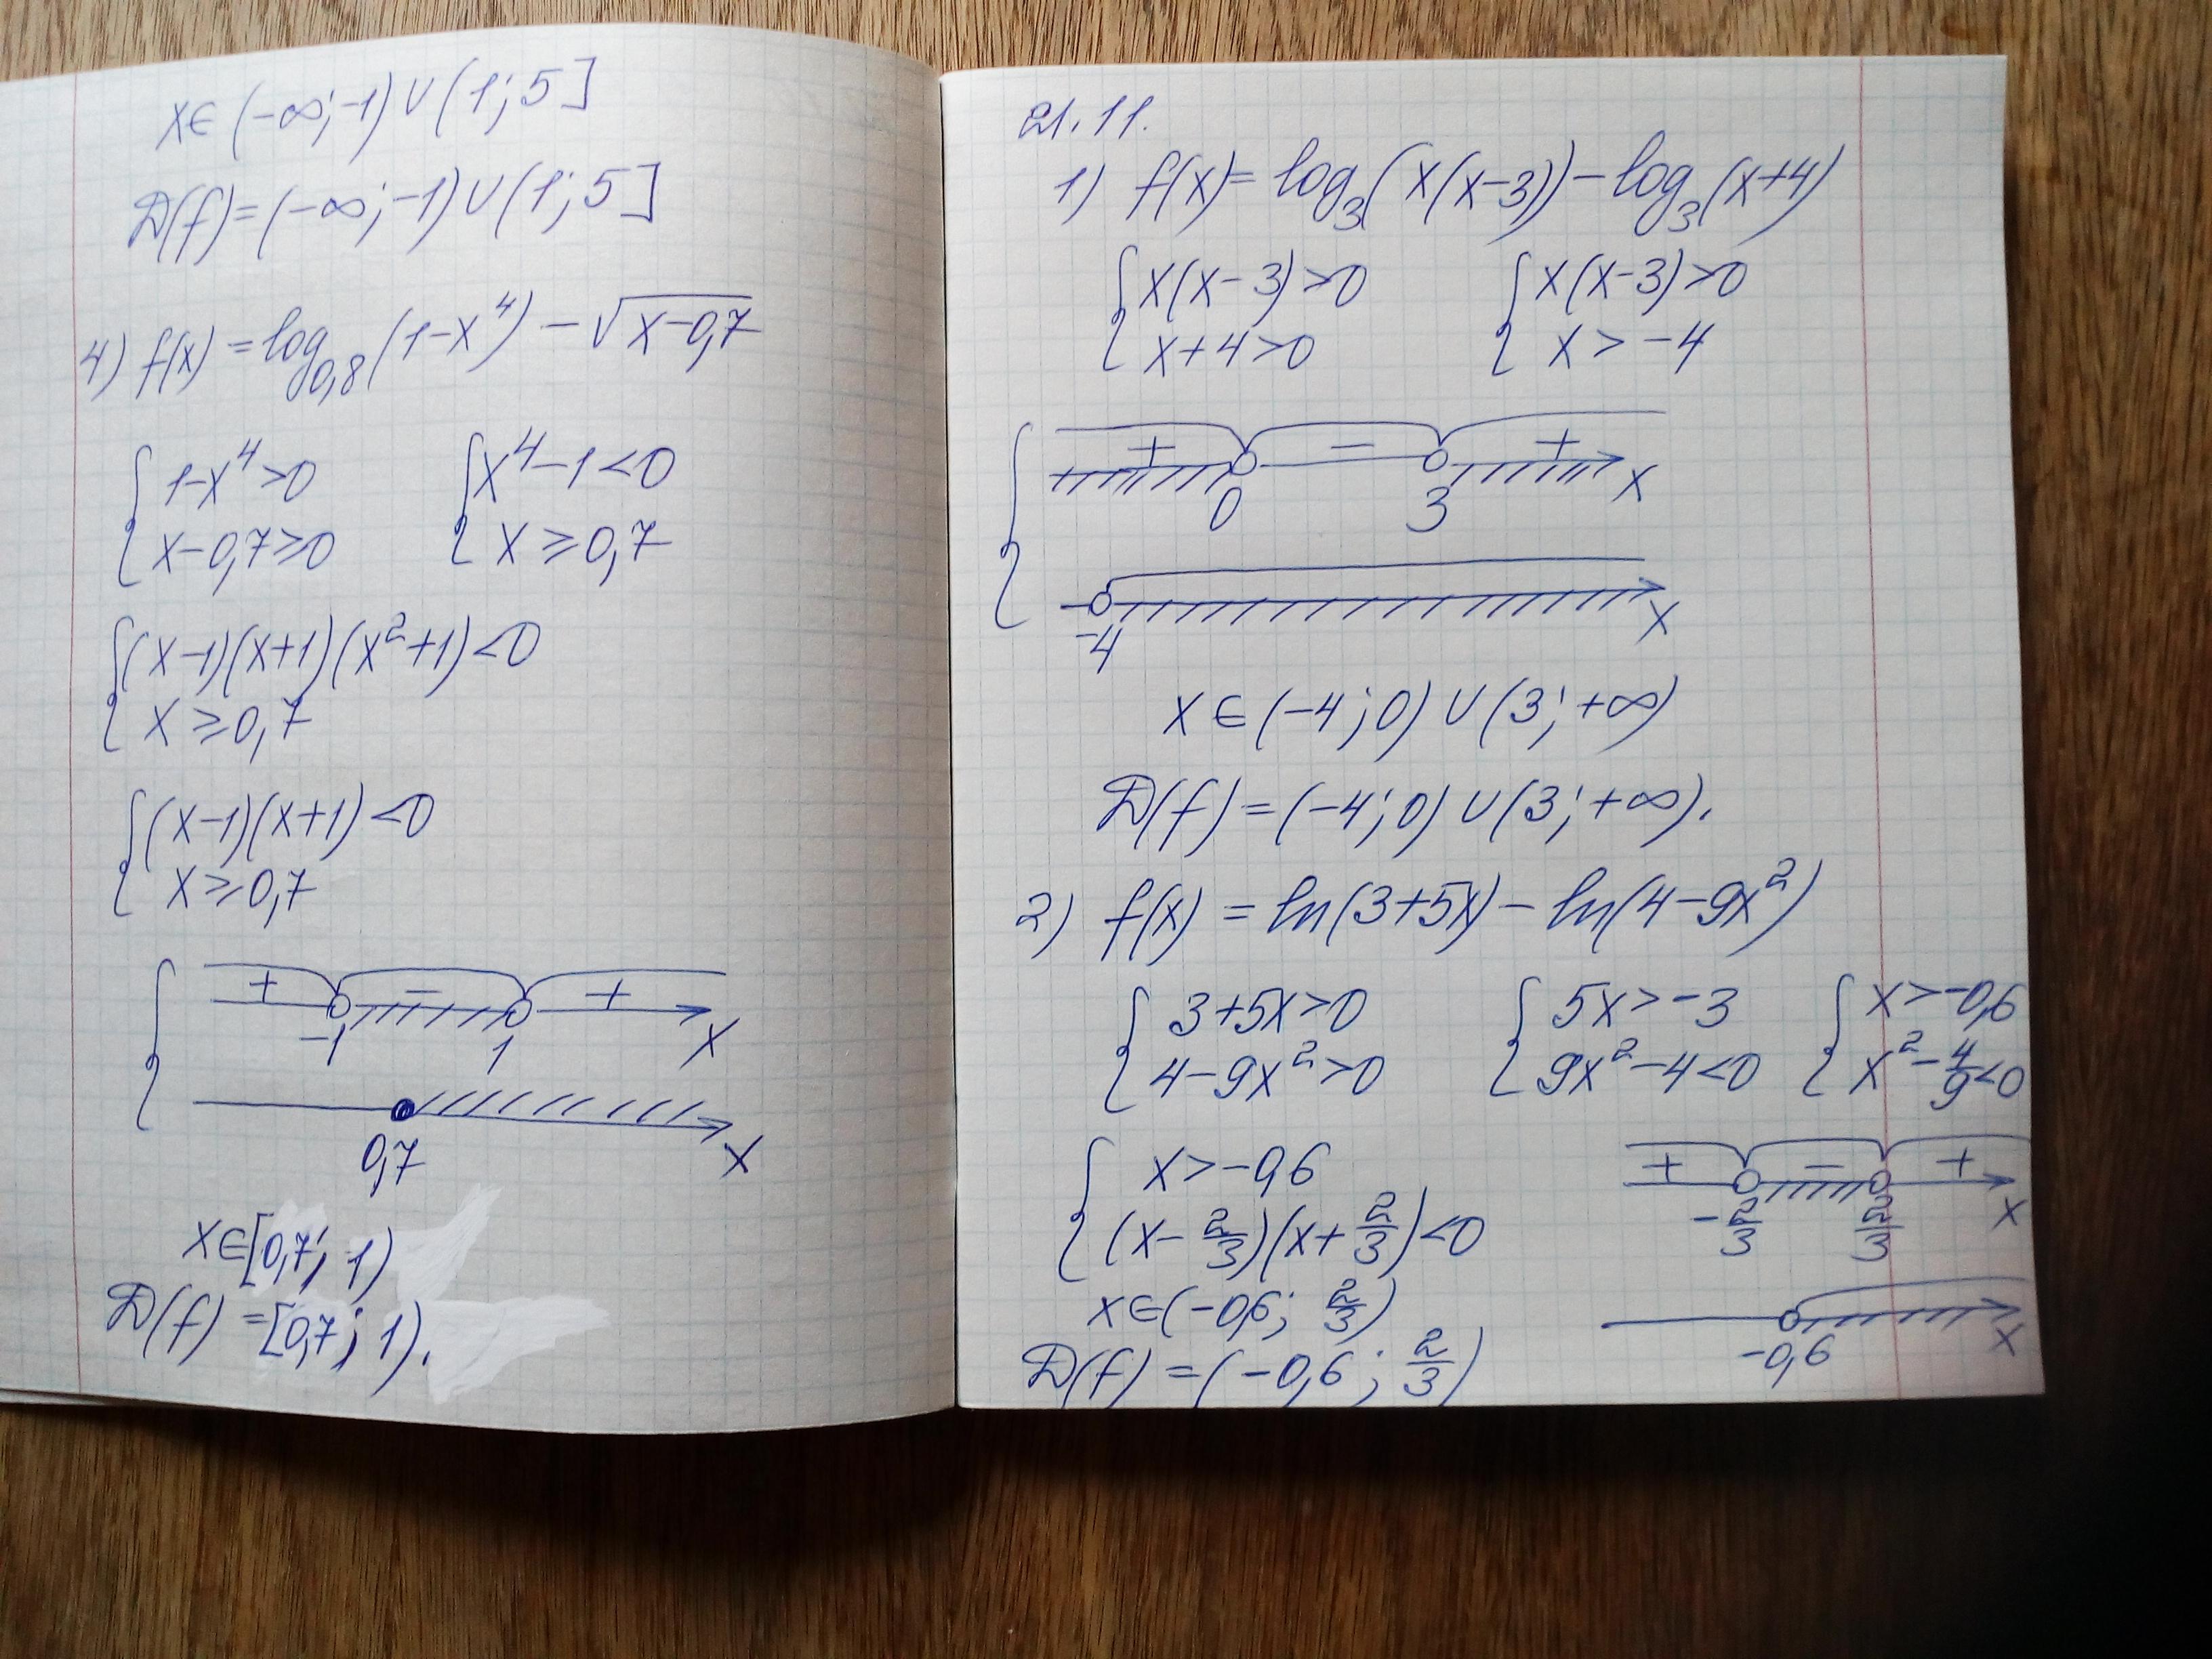 x∈(-∞;-1)∪(1;5]
D(f)=(-∞;-1)∪(1;5]
4) f(x)=log₀,₈(1-x⁴)-√(x-0,7)
{1-x⁴>0 {x⁴-1<0
{x-0,7≥0 {x≥0,7
{(x-1)(x+1)(x²+1)<0
{x≥0,7
{(x-1)(x+1)<0
{x≥0,7
+ - +
-1 1 x
0,7 x
x∈[0,7; 1)
D(f)=[0,7; 1).
21.11.
1) f(x)=log₃(x(x-3))-log₃(x+4)
{x(x-3)>0 {x(x-3)>0
{x+4>0 {x>-4
+ - +
0 3 x
-4 x
x∈(-4;0)∪(3;+∞)
D(f)=(-4;0)∪(3;+∞).
2) f(x)=ln(3+5x)-ln(4-9x²)
{3+5x>0 {5x>-3 {x>-0,6
{4-9x²>0 {9x²-4<0 {x²-4/9<0
{x>-0,6
{(x-2/3)(x+2/3)<0
x∈(-0,6; 2/3)
D(f)=(-0,6; 2/3)
+ - +
-2/3 2/3 x
-0,6 x